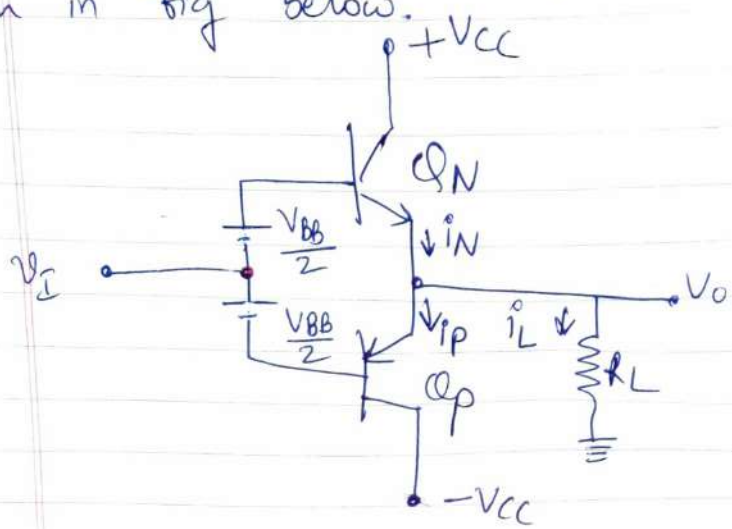 in fig below.
+VCC
QN
VBB
2
iN
vI
Vo
VBB
2
iP
iL
RL
QP
-VCC